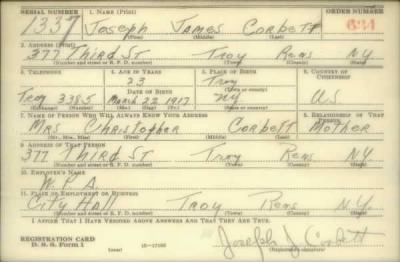 SERIAL NUMBER 1. NAME (Print) ORDER NUMBER
1337 Joseph James Corbett 634
(First) (Middle) (Last)
2. ADDRESS (Print)
377 Third St Troy Rens N.Y.
(Number and street or R. F. D. number) (Town) (County) (State)
3. TELEPHONE 4. AGE IN YEARS 5. PLACE OF BIRTH 6. COUNTRY OF CITIZENSHIP
23 Troy
DATE OF BIRTH (Town or county)
Troy 3385 March 22 1917 NY US
(Exchange) (Number) (Mo.) (Day) (Yr.) (State or country)
7. NAME OF PERSON WHO WILL ALWAYS KNOW YOUR ADDRESS 8. RELATIONSHIP OF THAT PERSON
Mrs Christopher Corbett Mother
(Mr., Mrs., Miss) (First) (Middle) (Last)
9. ADDRESS OF THAT PERSON
377 Third St Troy Rens N.Y.
(Number and street or R. F. D. number) (Town) (County) (State)
10. EMPLOYER'S NAME
W.P.A
11. PLACE OF EMPLOYMENT OR BUSINESS
City Hall Troy Rens N.Y.
(Number and street or R. F. D. number) (Town) (County) (State)
I AFFIRM THAT I HAVE VERIFIED ABOVE ANSWERS AND THAT THEY ARE TRUE.
REGISTRATION CARD
D. S. S. Form 1 (over) 16-17105 Joseph J Corbett
(Registrant's signature)